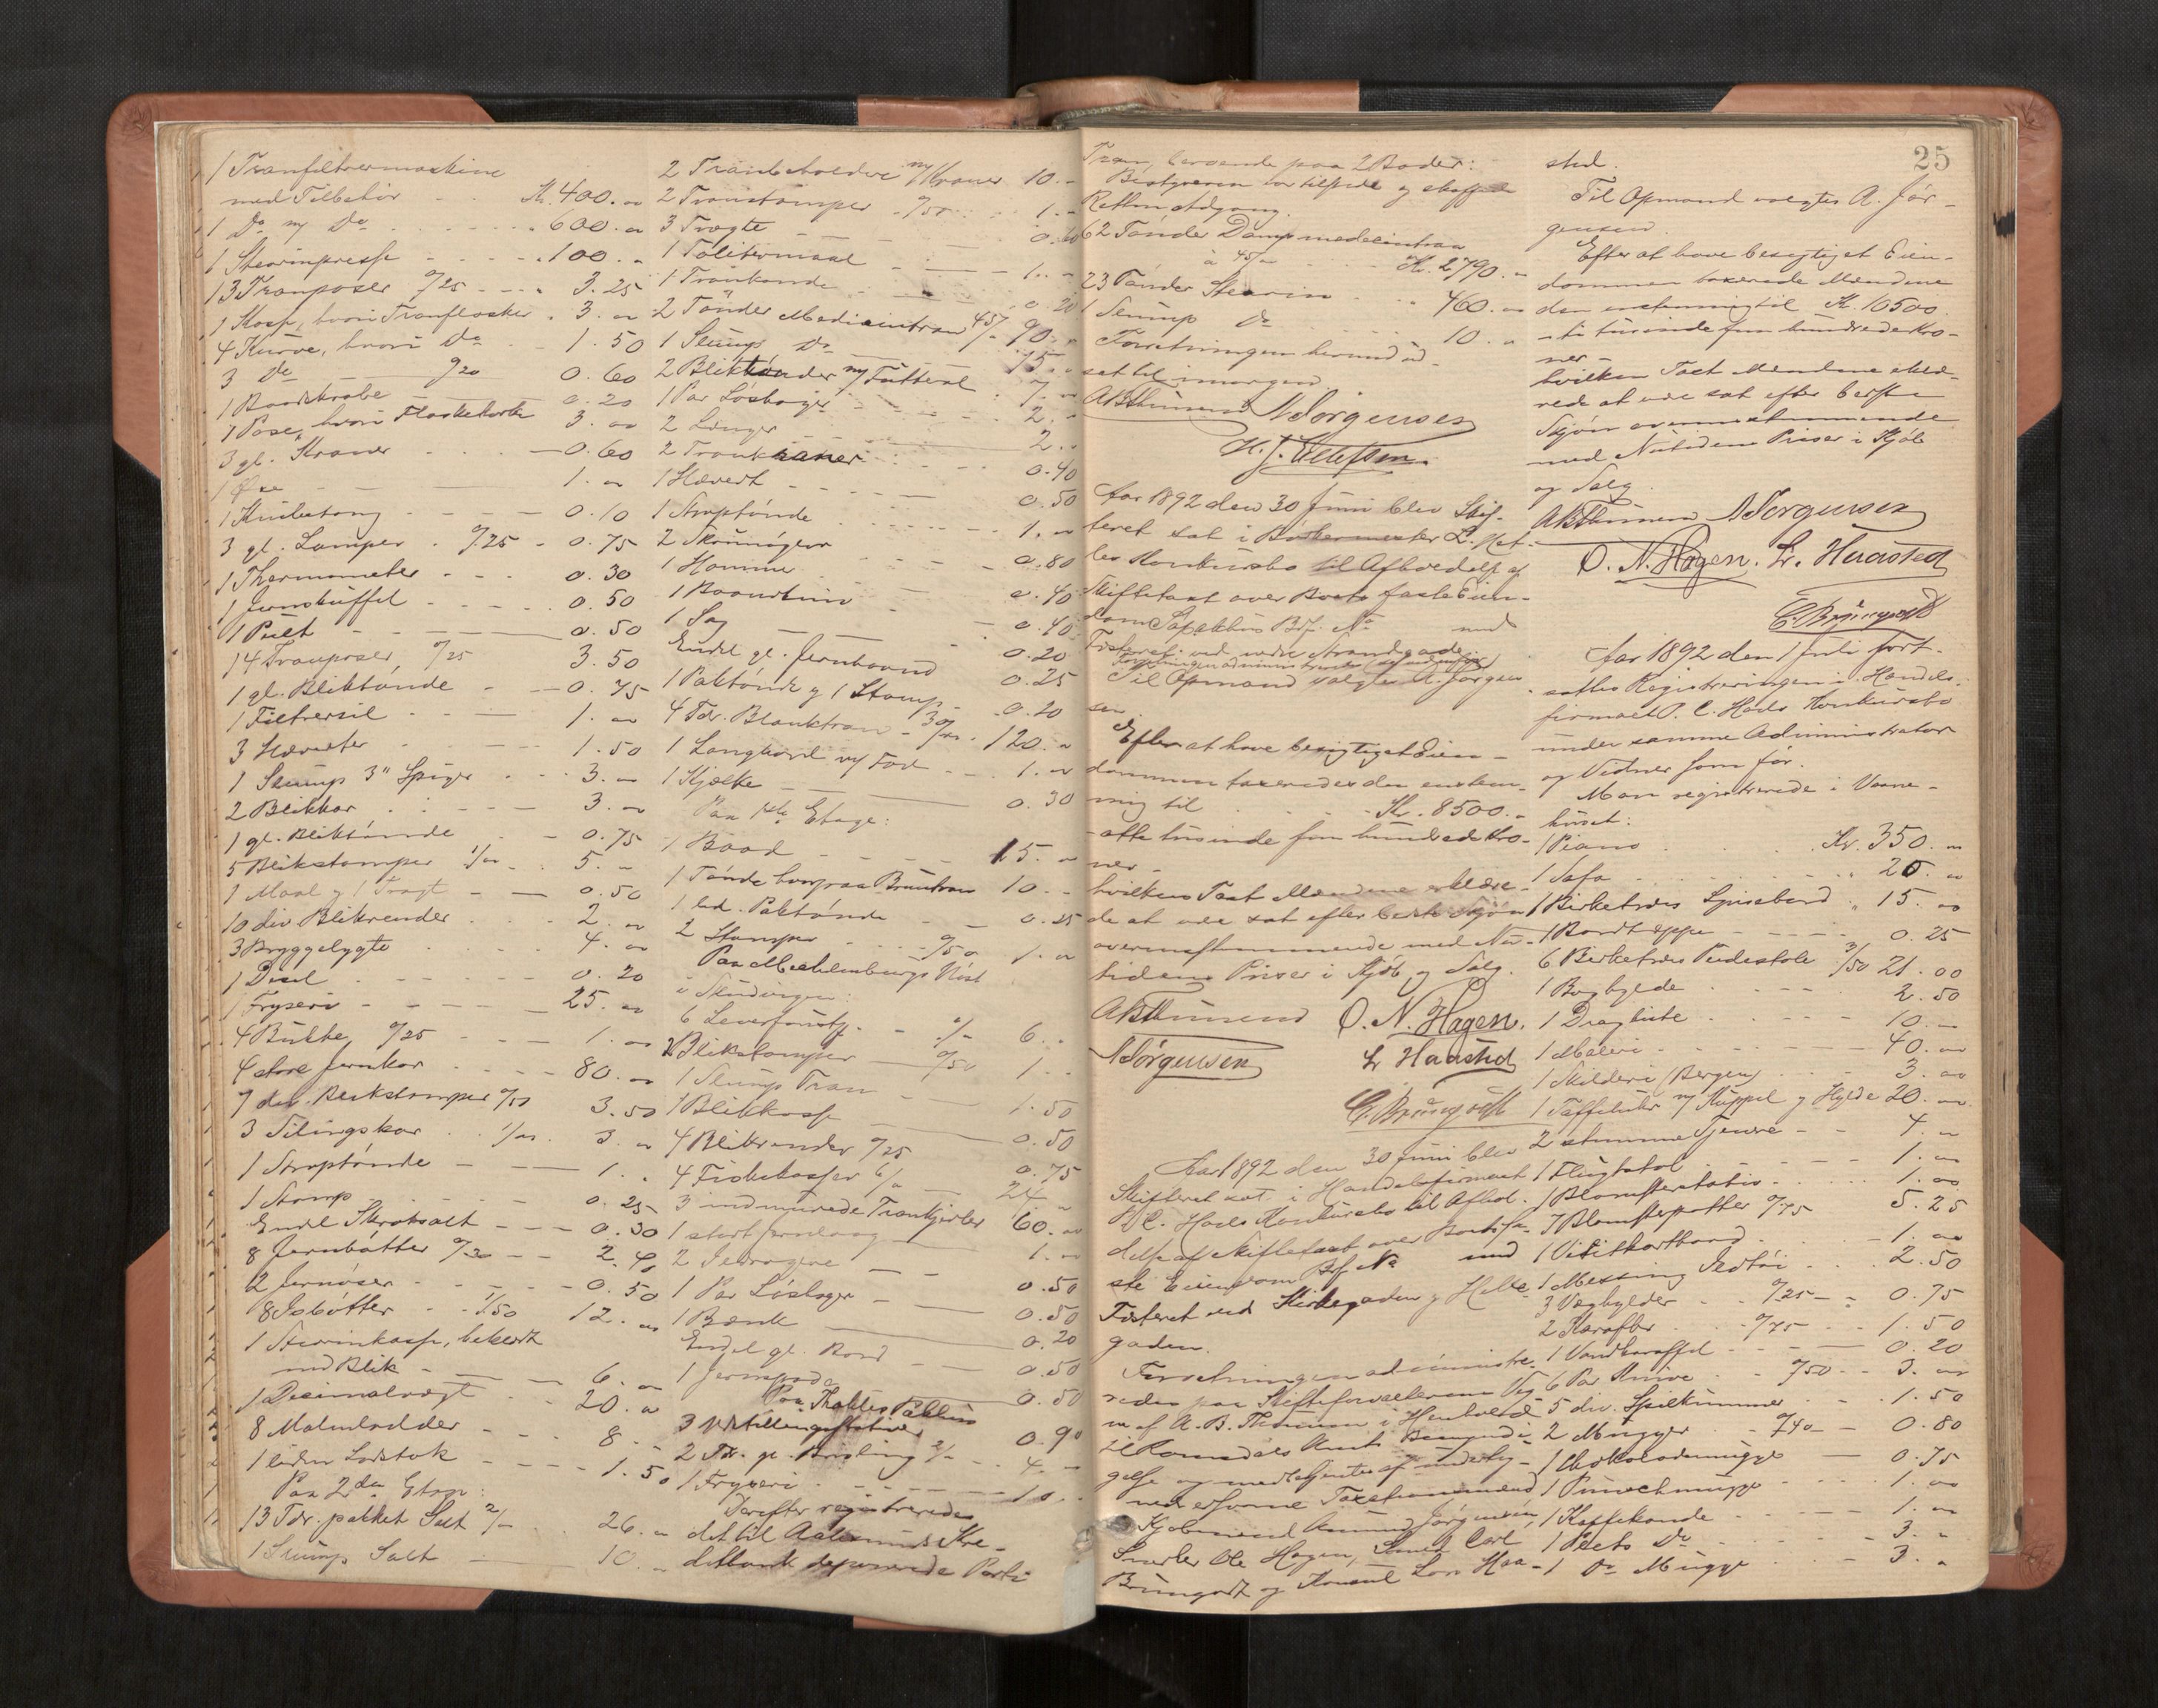 1 Tranfiltrermaskine
med Tilbehør - - Kr. 400. "
1 Do m/ Do - - - - 600. "
1 Stearinpresse - - - - 100. "
13 Tranposer 0/25 - - - 3.25
1 Kasse, hvori Tranflasker . 3. "
4 Kurve, hvori Do - 1.50
3 Do 0/20 0.60
1 Baadskrabe 0.20
1 Pose, hvori Flaskekorke 3. "
3 gl. Kraner - - - 0.60
1 Øxe - - - 1. "
1 Knibetang - - - 0.10
3 gl. Lamper . 0/25 - 0.75
1 Thermometer - - - 0.30
1 Jernskuffel - - - 0.50
1 Pult - - - 0.50
14 Tranposer, 0/25 3.50
1 gl. Bliktønde - - 0.75
1 Filtrersil - - 1. "
3 Hæverter - - 1.50
1 Slump 3" Spiger - - 3. "
2 Blikkar - - - 3. "
1 gl. Bliktønde - 0.75
5 Blikstamper 1/" - - 5. "
1 Maal og 1 Tragt - - 0.50
10 div Blikrender - - - 2. "
3 Bryggelygte - - - 4. "
1 Disel - - - 0.20
1 Fryseri - - - 25. "
4 Bütte, 0/25 - - 1. "
4 store Jernkar - - - 80. "
7 div. Blikstamper 0/50 3.50
3 Silingskar - - 1/". 3. "
1 Siruptønde - - 1. "
1 Stamp - - - 0.25
Endel Skrabsalt - - - 0.30
8 Jernbøtter 0/30 - - 2.40
2 Jernøser - - - 0.50
8 Isbøtter - - 1/50 12. "
1 Stearinkasse, beklædt
med Blik - - 6. "
1 Decimalvægt - 20. "
8 Malmlodder - - - 8. "
1 liden Lodstok - - - 1.50
Paa 2den Etage:
13 Tdr. pakket Salt 2/" - 26. "
1 Slump Salt - 10. "
2 Tranbeholdere m/ Kraner 10. -
2 Transtamper - 0/50 - - 1. -
3 Tragte - - - 0.60
1 Tolitermaal - - - 1. -
1 Trankande - - 0.20
2 Tønder Medicintran 45/- 90. "
1 Slump Do 15. "
2 Bliktønder m/ Futteral - 7. "
1 Par Løsbager - - - 2. "
2 Længer - - - 2. "
2 Trankraner - - - 0.40
1 Hævert - - - 0.50
1 Siruptønde - - - 1. "
2 Skrunøgler - - - 0.80
1 Hammer - - 0.40
1 Boundkniv - 0.40
1 Sag - - - 0.20
Endel gl. Jernbaand 0.25
1 Paktønde og 1 Stamp - 0.20
4 Tdr. Blanktran - 30/". 120. "
1 Langbord m/ Fod - - 1. "
1 Kjælke - 0.30
Paa 1ste Etage:
1 Baad - - - 15. "
1 Tønde hvorpaa Bruntran 10. -
1 led. Paktønde - 0.25
2 Stamper - - 0/50 1. "
Paa Mecklenburgs Nøst
i Skindvigen:
6 Leverfaustg. - 1/- 6. -
2 Blikstamper - 0/50 1. -
1 Slump Tran - 1.50
1 Blikkasse - 0.50
4 Blikrender 0/25 0.75
4 Fiskekasser 6/" 24. "
3 indmurede Trankjedler 60. "
1 stort Jernlaag - 1. "
2 Ildragere - - 0.50
1 Par Løsbager - - 0.50
1 Bænk - 0.20
Endel gl. Bord - - 0.50
1 Jernspade 0.50
Paa Thalles Pakhus
3 Udstillingsstativer 0.90
2 Tdr. gl. Brisling 2/- - 4. -
1 Fryseri - - - 10. -
Derefter registreredes
det til Aalesunds Kre-
ditbank deponerede Parti
25
Tran, beroende paa 2 Boder:
Bestyreren var tilstede og skaffede
Retten Adgang.
62 Tønder Dampmedicintran
a 45/" - - Kr. 2790. "
23 Tønder Stearin - - 460. "
1 Slump Do - - 10. "
Forretningen herved ud-
sat til imorgen.
ABThunend NJørgensen
H. J. Ellefsen.
Aar 1892 den 30 Juni blev Skif-
teret sat i Bødkermester L. Net-
les Konkursbo til Afholdelse af
Skiftetaxt over Boets faste Eien-
dom Søpakhus Brf. No med
Fisteret ved nedre Strandgade.
Forretningen administreredes og medbefor
Til Opmand valgtes A. Jørgen-
sen.
Efter at have besigtiget Eien-
dommen taxeredes den enstem-
mig til - - Kr. 8500. -
- otte tusinde fem hundrede Kro-
ner -
hvilken Taxt Mændene erklære-
de at være sat efter bedste Skjøn
overensstemmende med Nu-
tidens Priser i Kjøb og Salg.
ABThunend O. N. Hagen.
NJørgensen Lr. Haasted
C. Brungodt
Aar 1892 den 30 Juni blev
Skifteret sat i Handelsfirmaet
P. C. Hoels Konkursbo til Afhol-
delse af Skiftetaxt over Boets fa-
ste Eiendom Brf. No med
Fisteret ved Kirkegaden og Helle-
gaden.
Forretningen administre-
redes paa Skifteforvalterens Veg-
ne af A. B. Thunem i Henhold
til Romsdals Amts Bemyndi-
gelse og medbetjentes af underteg-
nede edsvorne Taxationsmænd
Kjøbmænd Amund Jørgensen,
Snedker Ole Hagen, Smed Carl
Brungodt og Konsul Lars Haa-
sted.
Til Opmand valgtes A. Jør-
gensen.
Efter at have besigtiget Eien-
dommen taxerede Mændene
den enstemmig til Kr. 10500.
- ti tusinde fem hundrede Kro-
ner -
hvilken Taxt Mændene erklæ-
rede at være sat efter bedste
Skjøn overensstemmende
med Nutidens Priser i Kjøb
og Salg.
ABThunem NJørgensen
O. N. Hagen. Lr. Haasted
C. Brungodt
Aar 1892 den 1 Juli fort-
sattes Registreringen i Handels-
firmaet P. C. Hoels Konkursbo
under samme Administrator
og Vidner som før.
Man registrerede i Vaane-
huset:
1 Piano - - Kr. 350. "
1 Sofa - - - " 25. "
1 Birketræes Spisebord " 15. "
1 Bordteppe - - - 0.25
6 Birketræes Pindestole 3/50 21.00
1 Boghylde - - - 2.50
1 Dragkiste - - 10. "
1 Maleri - - - 40. "
1 Skilderi (Bergen) - - 3. "
1 Taffeluhr m/ Kuppel og Hylde 20. "
2 stumme Tjenere - - 4. "
1 Flugtstol - - - 1. "
1 Blomsterstativ - - - 1. "
7 Blomsterpotter 0/75 5.25
1 Visitkortbord - - 1. "
1 Messing Ildtøi - - 2.50
3 Væghylder - 0/25 - - 0.75
2 Karafler - - 0/75 - - 1.50
1 Vandkaraffel - - - 0.20
6 Par Knive - - 0/50 - - 3. "
5 div. Spilkummer - - 1.50
2 Mugger - 0/40 - 0.80
1 Chokolademugge 0.75
1 Punschmugge - - - 1. "
1 Kaffekande - - - 1. "
1 Plets Do - - - 3. "
1 Do Mugge - - 3. "